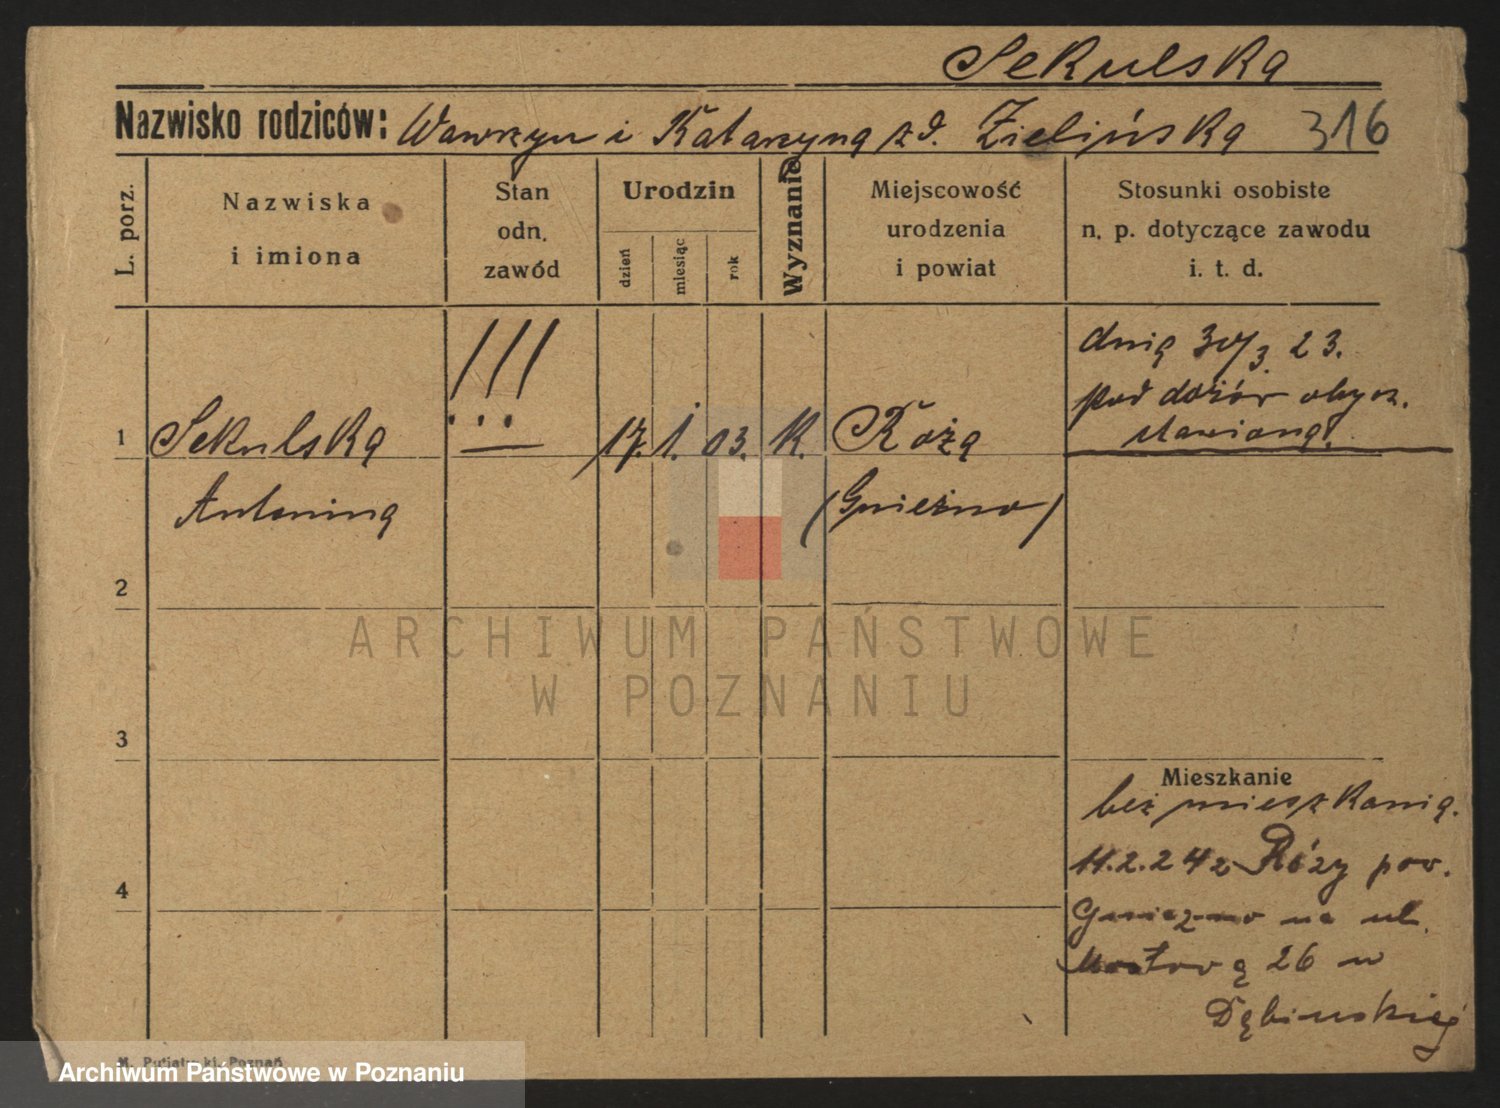 Sekulska
Nazwisko rodziców: Wawrzyn i Katarzyna z d. Zielińska 316
L. porz.
Nazwiska i imiona
Stan odn. zawód
Urodzin
dzień
miesiąc
rok
Wyznanie
Miejscowość urodzenia i powiat
Stosunki osobiste n. p. dotyczące zawodu i. t. d.
!!!
dnia 30/3. 23.
pod dozór obycz.
stawiona.
1 Sekulska 17. 1. 03. K. Róża
Antonina (Gniezno)
2
3
4
Mieszkanie
bez mieszkania.
11.2.24 z Róży pow.
Gniezno na ul.
Mostową 26 u
Dębińskiej
ARCHIWUM PAŃSTWOWE
W POZNANIU
M. Putiatycki, Poznań
Archiwum Państwowe w Poznaniu